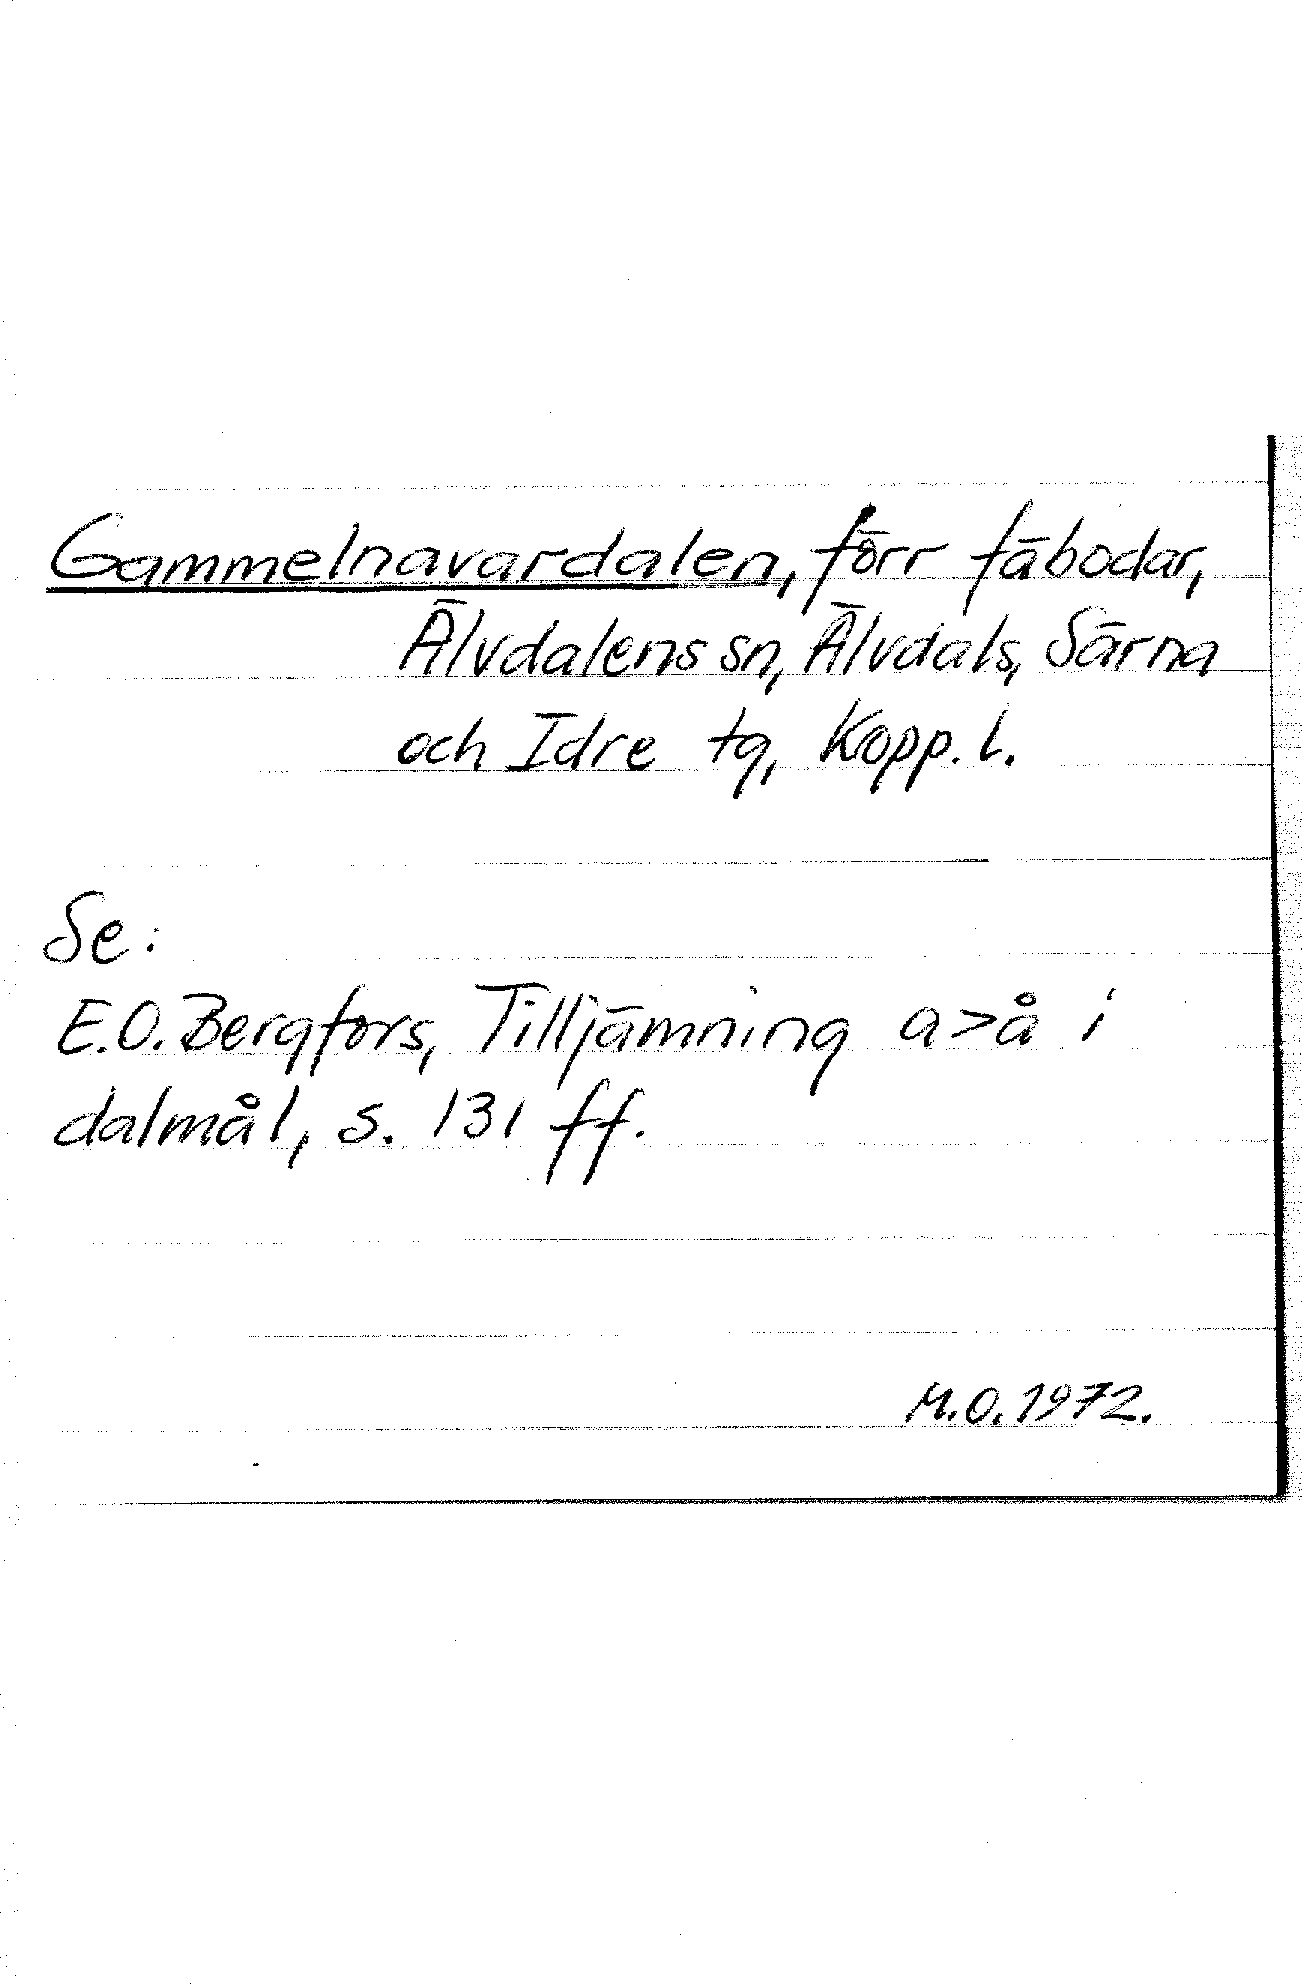 Gammelnavardalen, förr fäbodar,
Älvdalens sn, Älvdals, Särna
och Idre tg, Kopp. l.
Se:
E.O. Bergfors, Tilljämning a>å i
dalmål, s. 131 ff.
M.O. 1972.